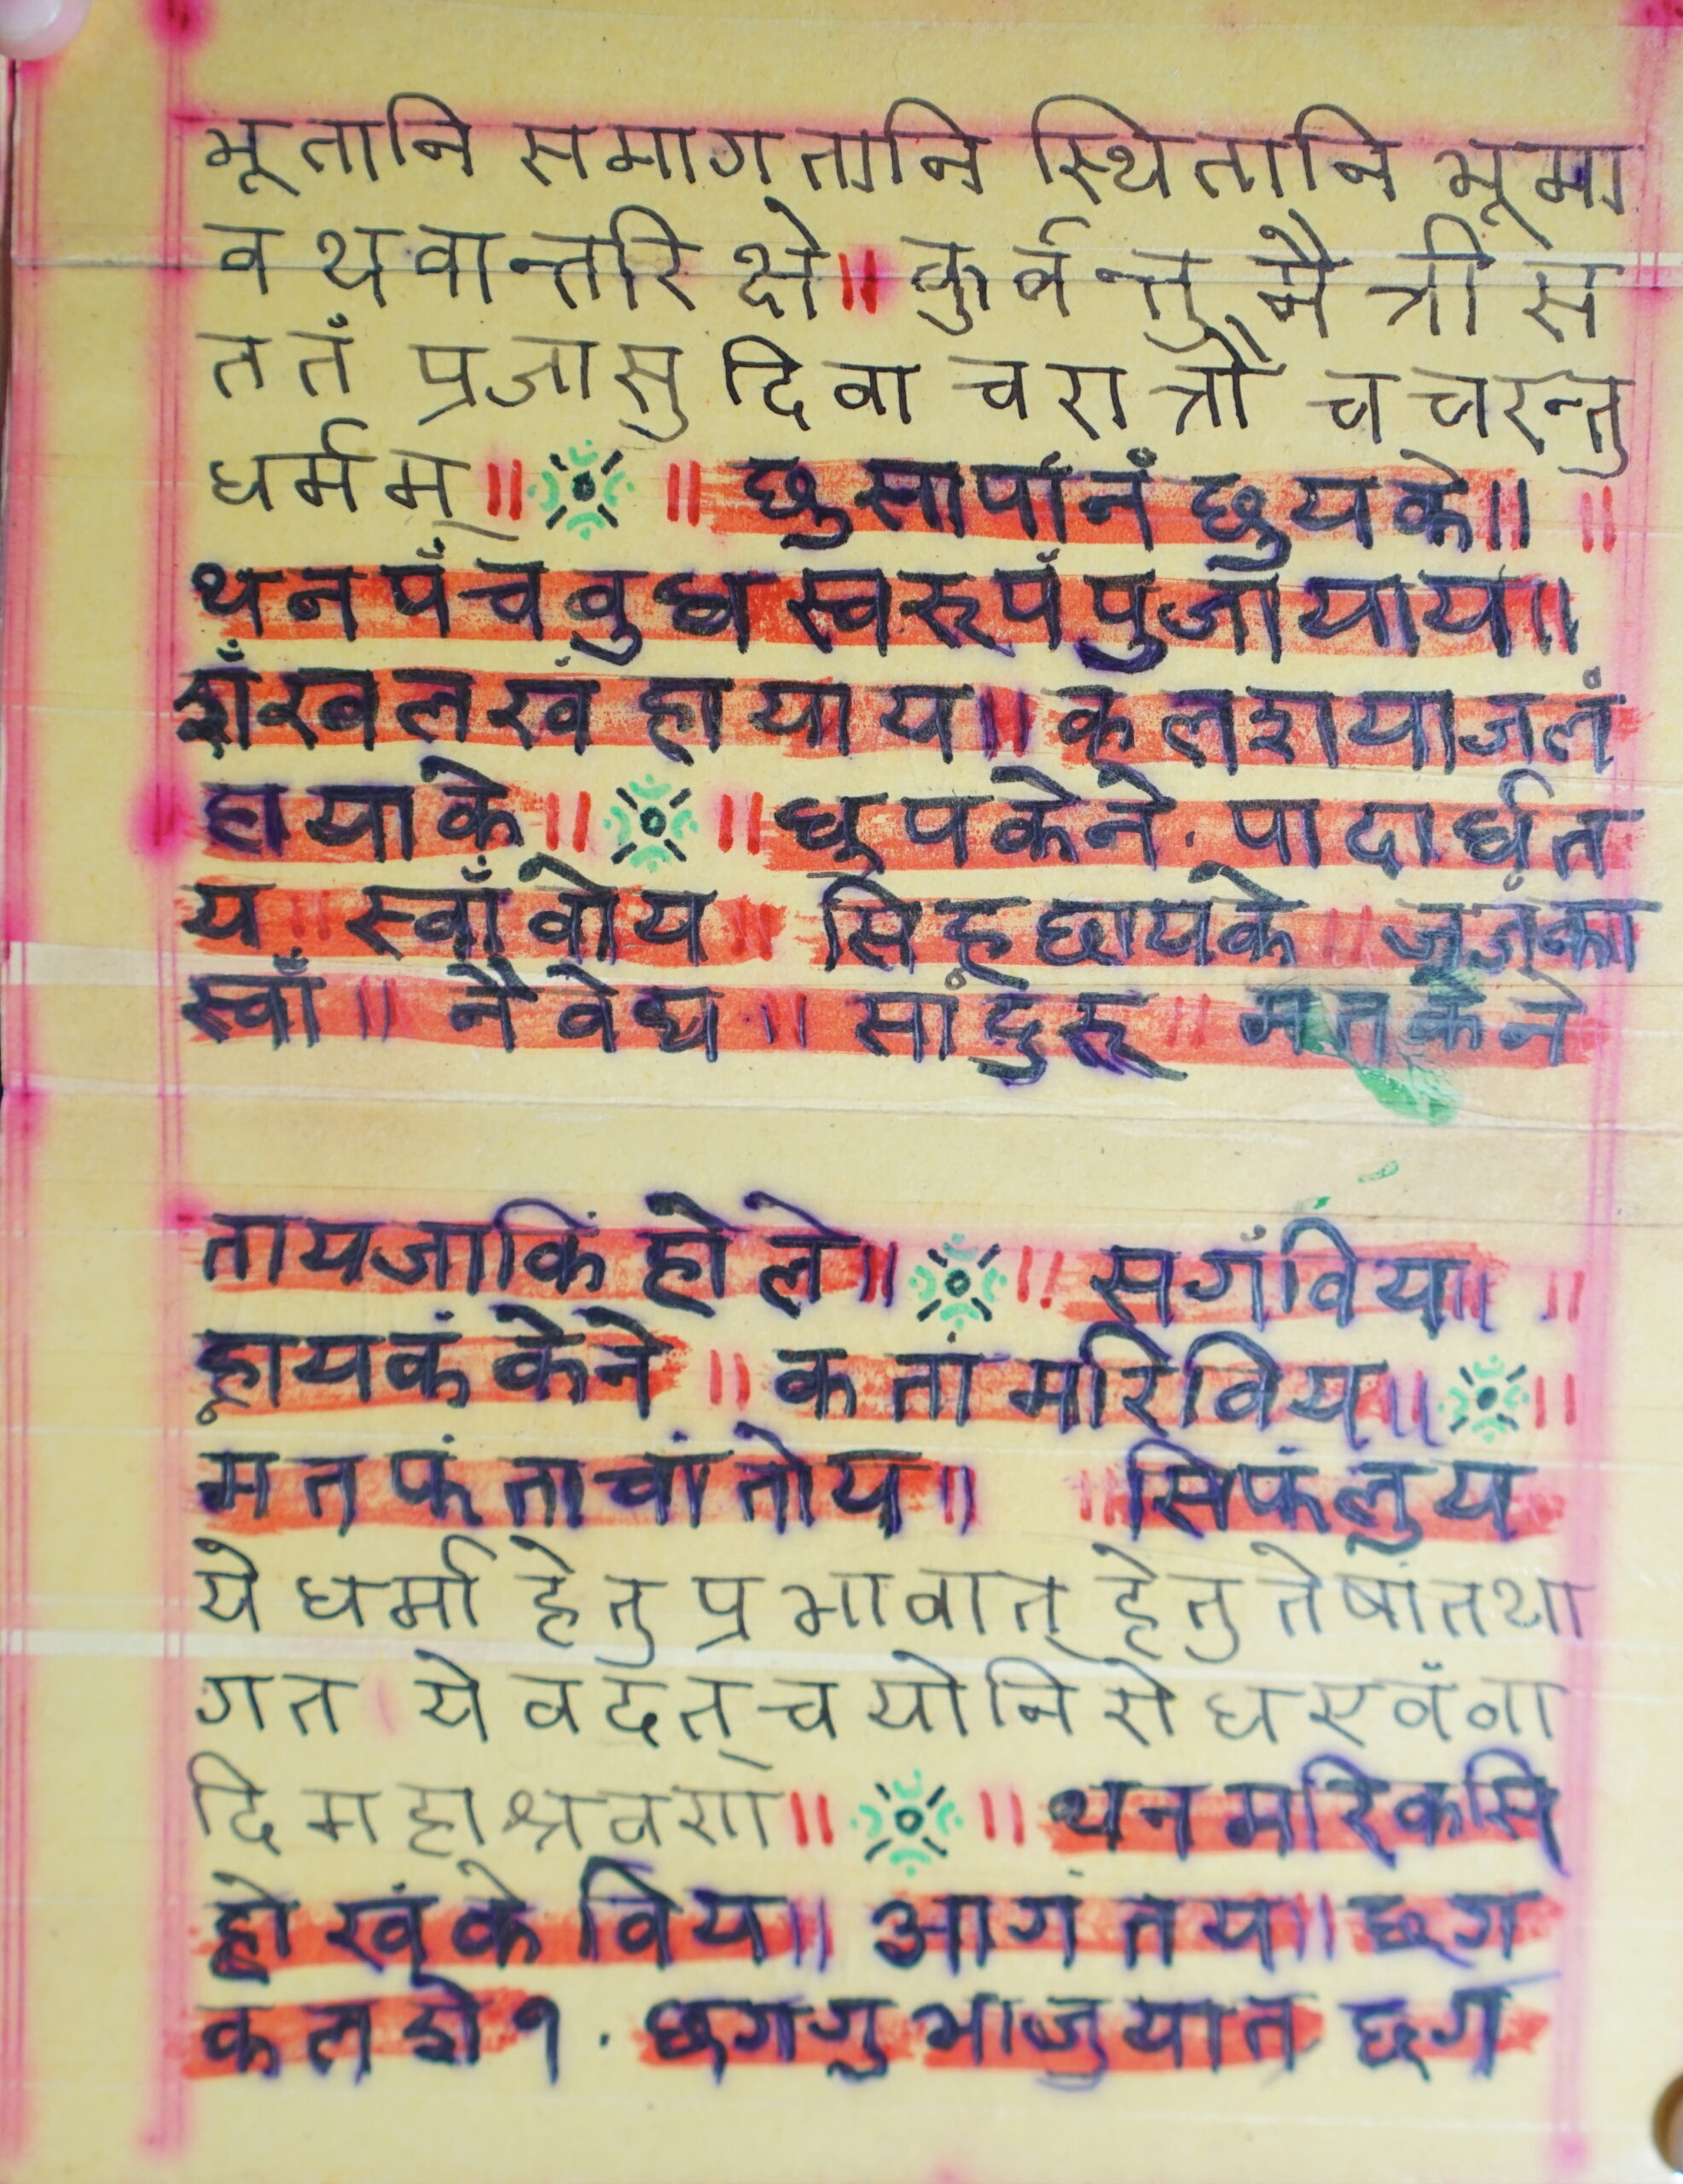 भूतानि समागतानि स्थितानि भूमा
वथवान्तरिक्षे॥ कुर्वन्तु मैत्री स
ततँ प्रजासु दिवा च रात्रौ च चरन्तु
धर्मम्॥ ॥ छुसापानँ छुयके॥ ॥
थन पँचवुध स्वरूपँ पुजाँ याय॥
शँखलखं हायाय॥ कलशया जलं
हायाके॥ ॥ धुपकेने. पादार्घत
य॥ स्वाँवोय॥ सिह्र छायके॥ जजंका
स्वाँ॥ नैवेद्य॥ सांदुरू॥ मतकेने
तायजाकिं होले॥ ॥ सगंविय॥ ॥
ह्नायकं केने॥ कतां मरिविय॥ ॥
मतफं ताचां तोय॥ ॥ सिफंलुय
ये धर्मा हेतु प्रभावात् हेतु तेषां तथा
गत ये वदत् च योनिरोध एवँवा
दि महाश्रवण॥ ॥ थन मरिकसि
ह्रो खंके विय॥ आगं तय॥ छग
कलशे १. छगगु भाजुयात छग